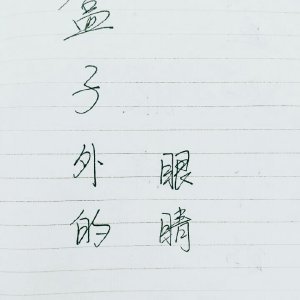 盒子外的
眼睛